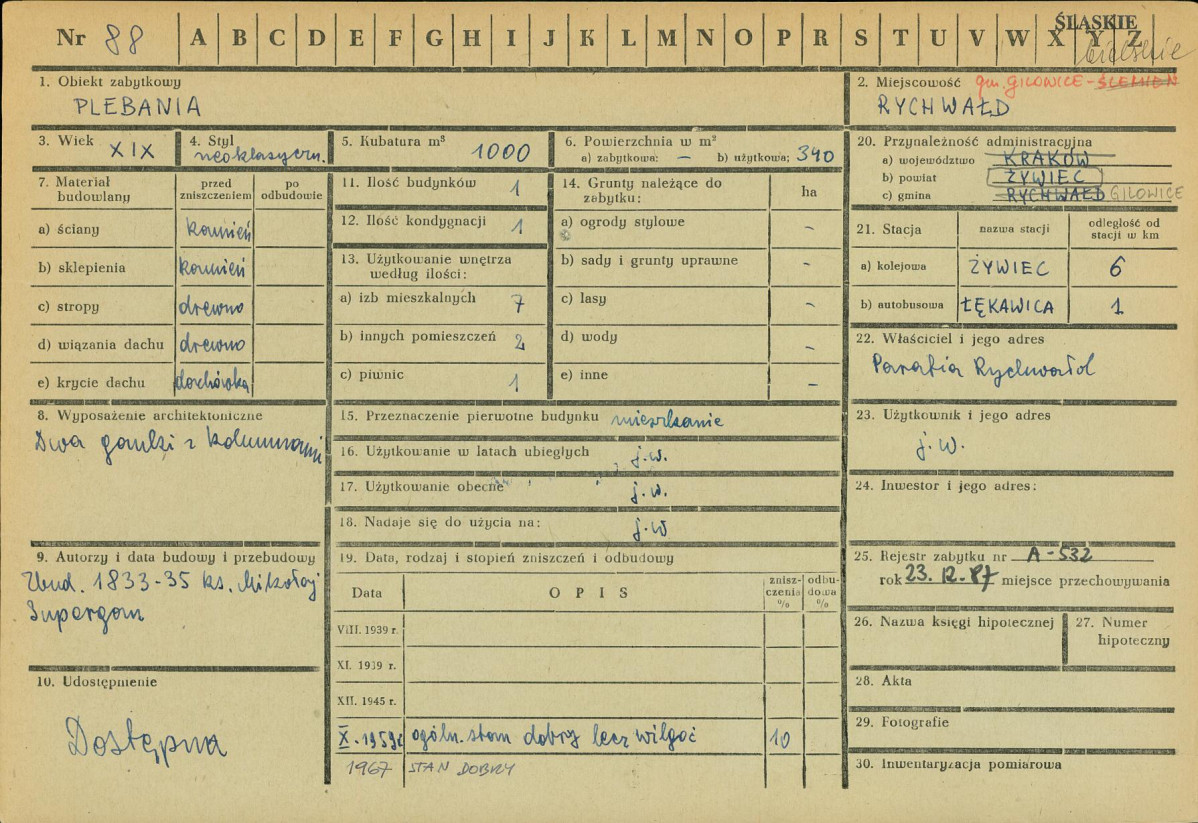 Nr 88 A B C D E F G H I J K L M N O P R S T U V W X Y Z
ŚLĄSKIE
bielskie
1. Obiekt zabytkowy
PLEBANIA
2. Miejscowość gm. GILOWICE - ŚLEMIEŃ
RYCHWAŁD
3. Wiek XIX
4. Styl
neoklasyczn.
5. Kubatura m³ 1000
6. Powierzchnia w m²
a) zabytkowa: — b) użytkowa: 340
7. Materiał budowlany
przed zniszczeniem
po odbudowie
a) ściany kamień
b) sklepienia kamień
c) stropy drewno
d) wiązania dachu drewno
e) krycie dachu dachówka
8. Wyposażenie architektoniczne
Dwa ganki z kolumnami
9. Autorzy i data budowy i przebudowy
Zbud. 1833-35 ks. Mikołaj
Supergan
10. Udostępnienie
Dostępna
11. Ilość budynków 1
12. Ilość kondygnacji 1
13. Użytkowanie wnętrza
według ilości:
a) izb mieszkalnych 7
b) innych pomieszczeń 2
c) piwnic 1
14. Grunty należące do
zabytku:
ha
a) ogrody stylowe –
b) sady i grunty uprawne –
c) lasy –
d) wody –
e) inne –
15. Przeznaczenie pierwotne budynku mieszkanie
16. Użytkowanie w latach ubiegłych j.w.
17. Użytkowanie obecne j.w.
18. Nadaje się do użycia na: j.w
19. Data, rodzaj i stopień zniszczeń i odbudowy
Data
O P I S
znisz-
czenia
%
odbu-
dowa
%
VIII. 1939 r.
XI. 1939 r.
XII. 1945 r.
X. 1959r ogóln. stan dobry lecz wilgoć 10
1967 STAN DOBRY
20. Przynależność administracyjna
a) województwo KRAKÓW
b) powiat ŻYWIEC
c) gmina RYCHWAŁD GILOWICE
21. Stacja
nazwa stacji
odległość od
stacji w km
a) kolejowa ŻYWIEC 6
b) autobusowa ŁĘKAWICA 1
22. Właściciel i jego adres
Parafia Rychwałd
23. Użytkownik i jego adres
j. w.
24. Inwestor i jego adres:
25. Rejestr zabytku nr A-532
rok 23. 12. 87 miejsce przechowywania
26. Nazwa księgi hipotecznej
27. Numer
hipoteczny
28. Akta
29. Fotografie
30. Inwentaryzacja pomiarowa